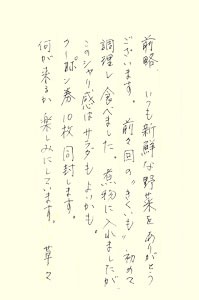 前略　いつも新鮮な野菜をありがとう
ございます。前々回の"きくいも"初めて
調理し食べました。煮物に入れましたが、
このシャリ感はサラダもよいかも。
クーポン券10枚同封します。
何が来るか楽しみにしています。　草々